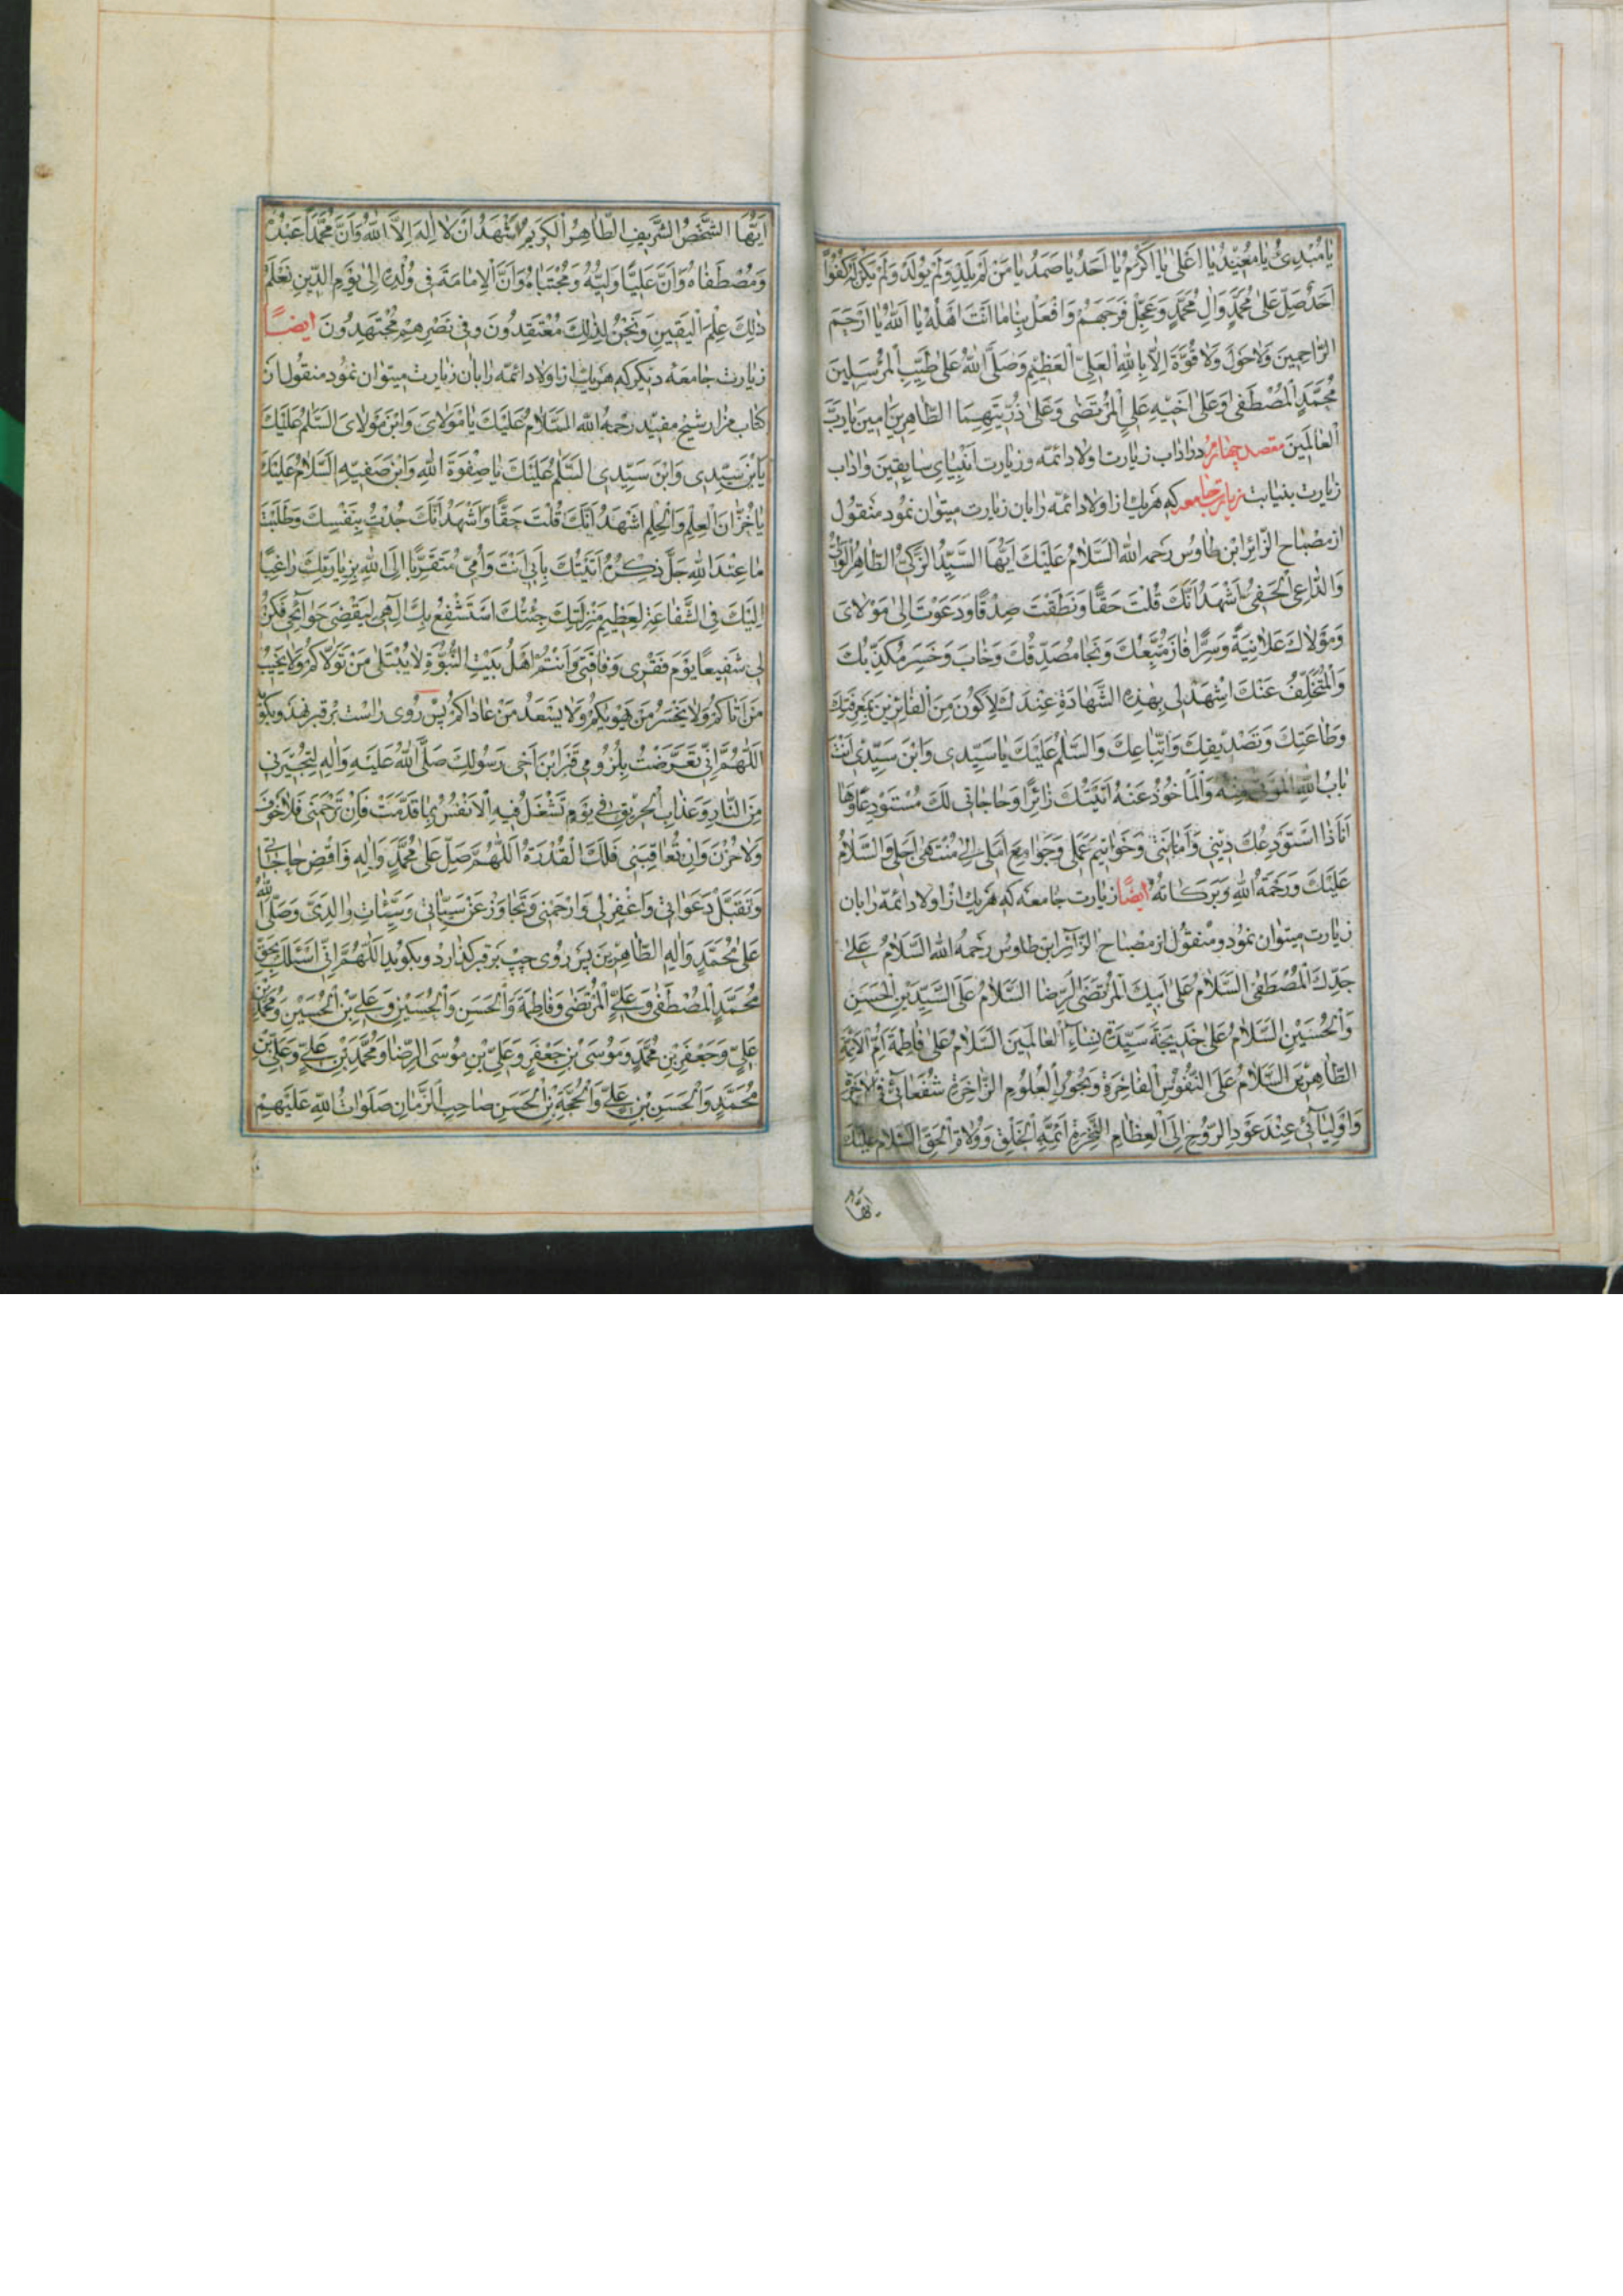 يا مُبْدِئُ يا مُعيدُ يا اَعْلىٰ يا اَكْرَمُ يا اَحَدُ يا صَمَدُ يا مَنْ لَمْ يَلِدْ وَلَمْ يُولَدْ وَلَمْ يَكُنْ لَهُ كُفُوًا
اَحَدٌ صَلِّ عَلىٰ مُحَمَّدٍ وَالِ مُحَمَّدٍ وَعَجِّلْ فَرَجَهُمْ وَافْعَلْ بِنا ما اَنْتَ اَهْلُهُ يا اَللّٰهُ يا اَرْحَمَ
الرّاحِمينَ وَلا حَوْلَ وَلا قُوَّةَ اِلّا بِاللّٰهِ الْعَلِيِّ الْعَظيمِ وَصَلَّى اللّٰهُ عَلىٰ طَيِّبِ الْمُرْسَلينَ
مُحَمَّدٍ الْمُصْطَفىٰ وَعَلىٰ اَخيهِ عَلِيٍّ الْمُرْتَضىٰ وَعَلىٰ ذُرِّيَّتِهِمَا الطّاهِرينَ امينَ يا رَبَّ
الْعالَمينَ مقصد چهارم در اداب زیارت اولاد ائمّه و زیارت انبیای سابقین و اداب
زیارت بنیابت زیارت جامعه که هریك از اولاد ائمّه را بان زیارت میتوان نمود منقول
از مصباح الزّائر ابن طاوس رحمه الله اَلسَّلامُ عَلَيْكَ اَيُّهَا السَّيِّدُ الزَّكِيُّ الطّاهِرُ الْوَلِيُّ
وَالدّاعِي الْحَفِيُّ اَشْهَدُ اَنَّكَ قُلْتَ حَقًّا وَنَطَقْتَ صِدْقًا وَدَعَوْتَ اِلىٰ مَوْلايَ
وَمَوْلاكَ عَلانِيَةً وَسِرًّا فازَ مُتَّبِعُكَ وَنَجا مُصَدِّقُكَ وَخابَ وَخَسِرَ مُكَذِّبُكَ
وَالْمُتَخَلِّفُ عَنْكَ اِشْهَدْ لي بِهٰذِهِ الشَّهادَةِ عِنْدَكَ لِاَكُونَ مِنَ الْفائِزينَ بِمَعْرِفَتِكَ
وَطاعَتِكَ وَتَصْديقِكَ وَاتِّباعِكَ وَالسَّلٰمُ عَلَيْكَ يا سَيِّدي وَابْنَ سَيِّدي اَنْتَ
بابُ اللّٰهِ الْمُؤْتىٰ مِنْهُ وَالْمَأْخُوذُ عَنْهُ اَتَيْتُكَ زائِرًا وَحاجاتي لَكَ مُسْتَوْدِعًا وَها
اَنَا ذا اَسْتَوْدِعُكَ ديني وَاَمانَتي وَخَواتيمَ عَمَلي وَجَوامِعَ اَمَلي اِلىٰ مُنْتَهىٰ اَجَلي وَالسَّلامُ
عَلَيْكَ وَرَحْمَةُ اللّٰهِ وَبَرَكاتُهُ ایضًا زیارت جامعه که هریك از اولاد ائمّه را بان
زیارت میتوان نمود و منقول از مصباح الزّائر ابن طاوس رحمه الله اَلسَّلامُ عَلىٰ
جَدِّكَ الْمُصْطَفىٰ اَلسَّلامُ عَلىٰ اَبيكَ الْمُرْتَضَى الرِّضا اَلسَّلامُ عَلَى السَّيِّدَيْنِ الْحَسَنِ
وَالْحُسَيْنِ اَلسَّلامُ عَلىٰ خَديجَةَ سَيِّدَةِ نِساءِ الْعالَمينَ اَلسَّلامُ عَلىٰ فاطِمَةَ اُمِّ الْاَئِمَّةِ
الطّاهِرينَ اَلسَّلامُ عَلَى النُّفُوسِ الْفاخِرَةِ وَبُحُورِ الْعُلُومِ الزّاخِرَةِ شُفَعائي فِي الْاٰخِرَةِ
وَاَوْلِيائي عِنْدَ عَوْدِ الرُّوحِ اِلَى الْعِظامِ النَّخِرَةِ اَئِمَّةِ الْخَلْقِ وَوُلاةِ الْحَقِّ اَلسَّلامُ عَلَيْكَ
اَيُّهَا
اَيُّهَا الشَّخْصُ الشَّريفُ الطّاهِرُ الْكَريمُ اَشْهَدُ اَنْ لا اِلٰهَ اِلَّا اللّٰهُ وَاَنَّ مُحَمَّدًا عَبْدُهُ
وَمُصْطَفاهُ وَاَنَّ عَلِيًّا وَلِيُّهُ وَمُجْتَباهُ وَاَنَّ الْاِمامَةَ في وُلْدِهِ اِلىٰ يَوْمِ الدّينِ نَعْلَمُ
ذٰلِكَ عِلْمَ الْيَقينِ وَنَحْنُ لِذٰلِكَ مُعْتَقِدُونَ وَفي نَصْرِهِمْ مُجْتَهِدُونَ ایضًا
زیارت جامعه دیکر که هریك از اولاد ائمّه را بان زیارت میتوان نمود منقول از
کتاب مزار شیخ مفید رحمه الله اَلسَّلامُ عَلَيْكَ يا مَوْلايَ وَابْنَ مَوْلايَ اَلسَّلٰمُ عَلَيْكَ
يَا بْنَ سَيِّدي وَابْنَ سَيِّدي اَلسَّلٰمُ عَلَيْكَ يا صِفْوَةَ اللّٰهِ وَابْنَ صَفِيِّهِ اَلسَّلامُ عَلَيْكَ
يا خُزّانَ الْعِلْمِ وَالْحِلْمِ اَشْهَدُ اَنَّكَ قُلْتَ حَقًّا وَاَشْهَدُ اَنَّكَ جُدْتَ بِنَفْسِكَ وَطَلَبْتَ
ما عِنْدَ اللّٰهِ جَلَّ ذِكْرُهُ اَتَيْتُكَ بِاَبي اَنْتَ وَاُمّي مُتَقَرِّبًا اِلَى اللّٰهِ بِزِيارَتِكَ راغِبًا
اِلَيْكَ فِي الشَّفاعَةِ لِعَظيمِ مَنْزِلَتِكَ جِئْتُكَ اَسْتَشْفِعُ بِكَ اِلٰهي لِيَقْضِيَ حَوائِجي فَكُنْ
لي شَفيعًا يَوْمَ فَقْري وَفاقَتي وَاَنْتُمْ اَهْلُ بَيْتِ النُّبُوَّةِ لا يُبْتَلىٰ مَنْ تَوَلّاكُمْ وَلا يَخيبُ
مَنْ اَتاكُمْ وَلا يَخْسَرُ مَنْ يَهْويكُمْ وَلا يَسْعَدُ مَنْ عاداكُمْ پس روی راست بر قبر نهد و بکوید
اَللّٰهُمَّ اِنّي تَعَرَّضْتُ بِلُزُومي قَبْرَ ابْنِ اَخي رَسُولِكَ صَلَّى اللّٰهُ عَلَيْهِ وَالِهِ لِتُجيرَني
مِنَ النّارِ وَعَذابِ الْحَريقِ في يَوْمٍ تَشْغَلُ فيهِ الْاَنْفُسُ بِما قَدَّمَتْ فَاِنْ تَرْحَمْني فَلا خَوْفَ
وَلا حُزْنَ وَاِنْ تُعاقِبْني فَلَكَ الْقُدْرَةُ اَللّٰهُمَّ صَلِّ عَلىٰ مُحَمَّدٍ وَالِهِ وَاقْضِ حاجاتي
وَتَقَبَّلْ دَعَواتي وَاغْفِرْ لي وَارْحَمْني وَتَجاوَزْ عَنْ سَيِّئاتي وَسَيِّئاتِ والِدَيَّ وَصَلَّى اللّٰهُ
عَلىٰ مُحَمَّدٍ وَالِهِ الطّاهِرينَ پس روی چپ بر قبر کذارد و بکوید اَللّٰهُمَّ اِنّي اَسْئَلُكَ بِحَقِّ
مُحَمَّدٍ الْمُصْطَفىٰ وَعَلِيٍّ الْمُرْتَضىٰ وَفاطِمَةَ وَالْحَسَنِ وَالْحُسَيْنِ وَعَلِيِّ بْنِ الْحُسَيْنِ وَمُحَمَّدِ بْنِ
عَلِيٍّ وَجَعْفَرِ بْنِ مُحَمَّدٍ وَمُوسَى بْنِ جَعْفَرٍ وَعَلِيِّ بْنِ مُوسَى الرِّضا وَمُحَمَّدِ بْنِ عَلِيٍّ وَعَلِيِّ بْنِ
مُحَمَّدٍ وَالْحَسَنِ بْنِ عَلِيٍّ وَالْحُجَّةِ بْنِ الْحَسَنِ صاحِبِ الزَّمانِ صَلَواتُ اللّٰهِ عَلَيْهِمْ